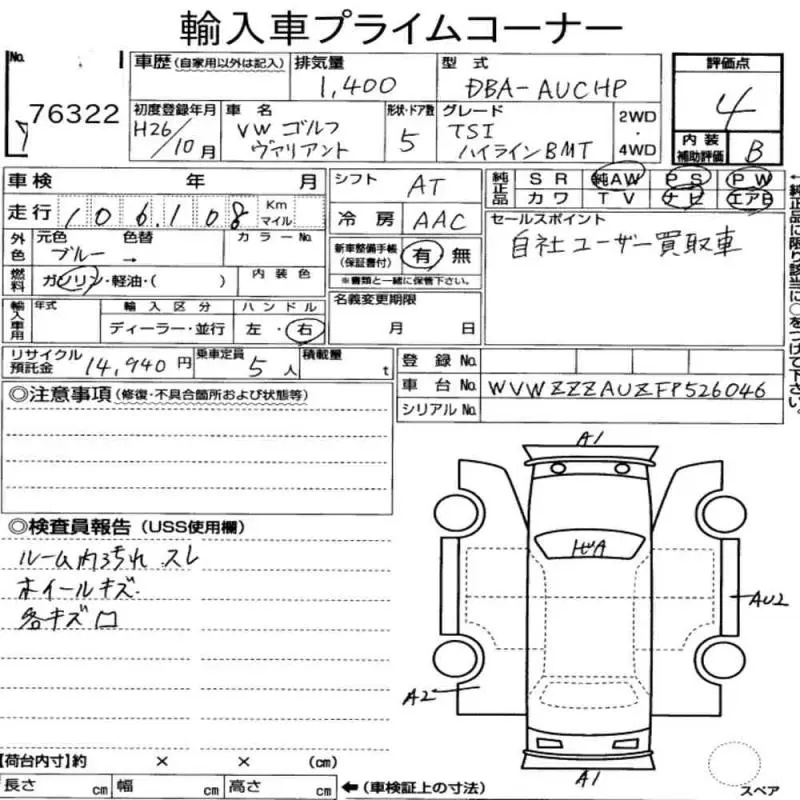 輸入車プライムコーナー
No. 76322
7
車歴 (自家用以外は記入) 排気量 1,400 型式 DBA-AUCHP
評価点 4
初度登録年月 H26/10月 車名 VW ゴルフ ヴァリアント 形状・ドア数 5 グレード TSI ハイラインBMT 2WD・4WD
内装補助評価 B
車検 年 月 シフト AT
純正品 SR 純AW PS PW
カワ TV ナビ エアB
走行 106,108 Km マイル 冷房 AAC
セールスポイント
自社ユーザー買取車
外色 元色 ブルー 色替 → カラーNo.
新車整備手帳(保証書付) 有 無
※書類と一緒に保管下さい。
燃料 ガソリン・軽油・( ) 内装色
名義変更期限 月 日
輸入車用 年式 輸入区分 ディーラー・並行 ハンドル 左・右
←純正品に限り該当に○をつけて下さい。
リサイクル預託金 14,940円 乗車定員 5人 積載量 t
登録No.
車台No. WVWZZZAUZFP526046
シリアルNo.
◎注意事項(修復・不具合箇所および状態等)
◎検査員報告(USS使用欄)
ルーム内汚れ スレ
ホイールキズ
各キズ凹
A1
AU2
A2
A1
スペア
【荷台内寸】約 × × (cm)
長さ cm 幅 cm 高さ cm ←(車検証上の寸法)